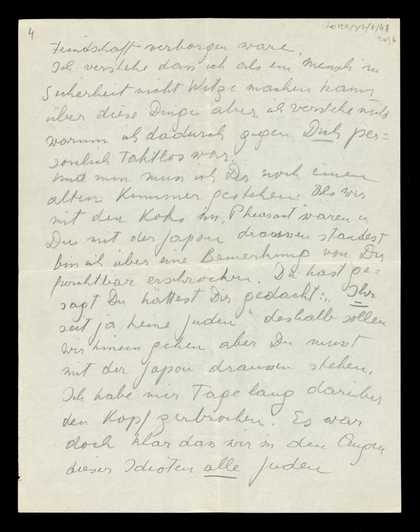 4
Feindschaft verborgen wäre.
Ich verstehe dass ich als ein Mensch in
Sicherheit nicht Witze machen kann
über diese Dinge aber ich verstehe nicht
warum ich dadurch gegen Dich per=
sönlich taktlos war.
Und nun muss ich Dir noch einen
alten Kummer gestehen. Als wir
mit den im Pheasant waren u
Du mit der japon draussen standest
bin ich über eine Bemerkung von Dir
furchtbar erschrocken. Du hast ge=
sagt Du hattest Dir gedacht: „Ihr
seit ja keine Juden" deshalb sollen
wir hinein gehen aber Du musst
mit der japon draussen stehen.
Ich habe mir Tage lang darüber
den Kopf zerbrochen. Es war
doch klar dass wir in den Augen
dieser Idioten alle Juden